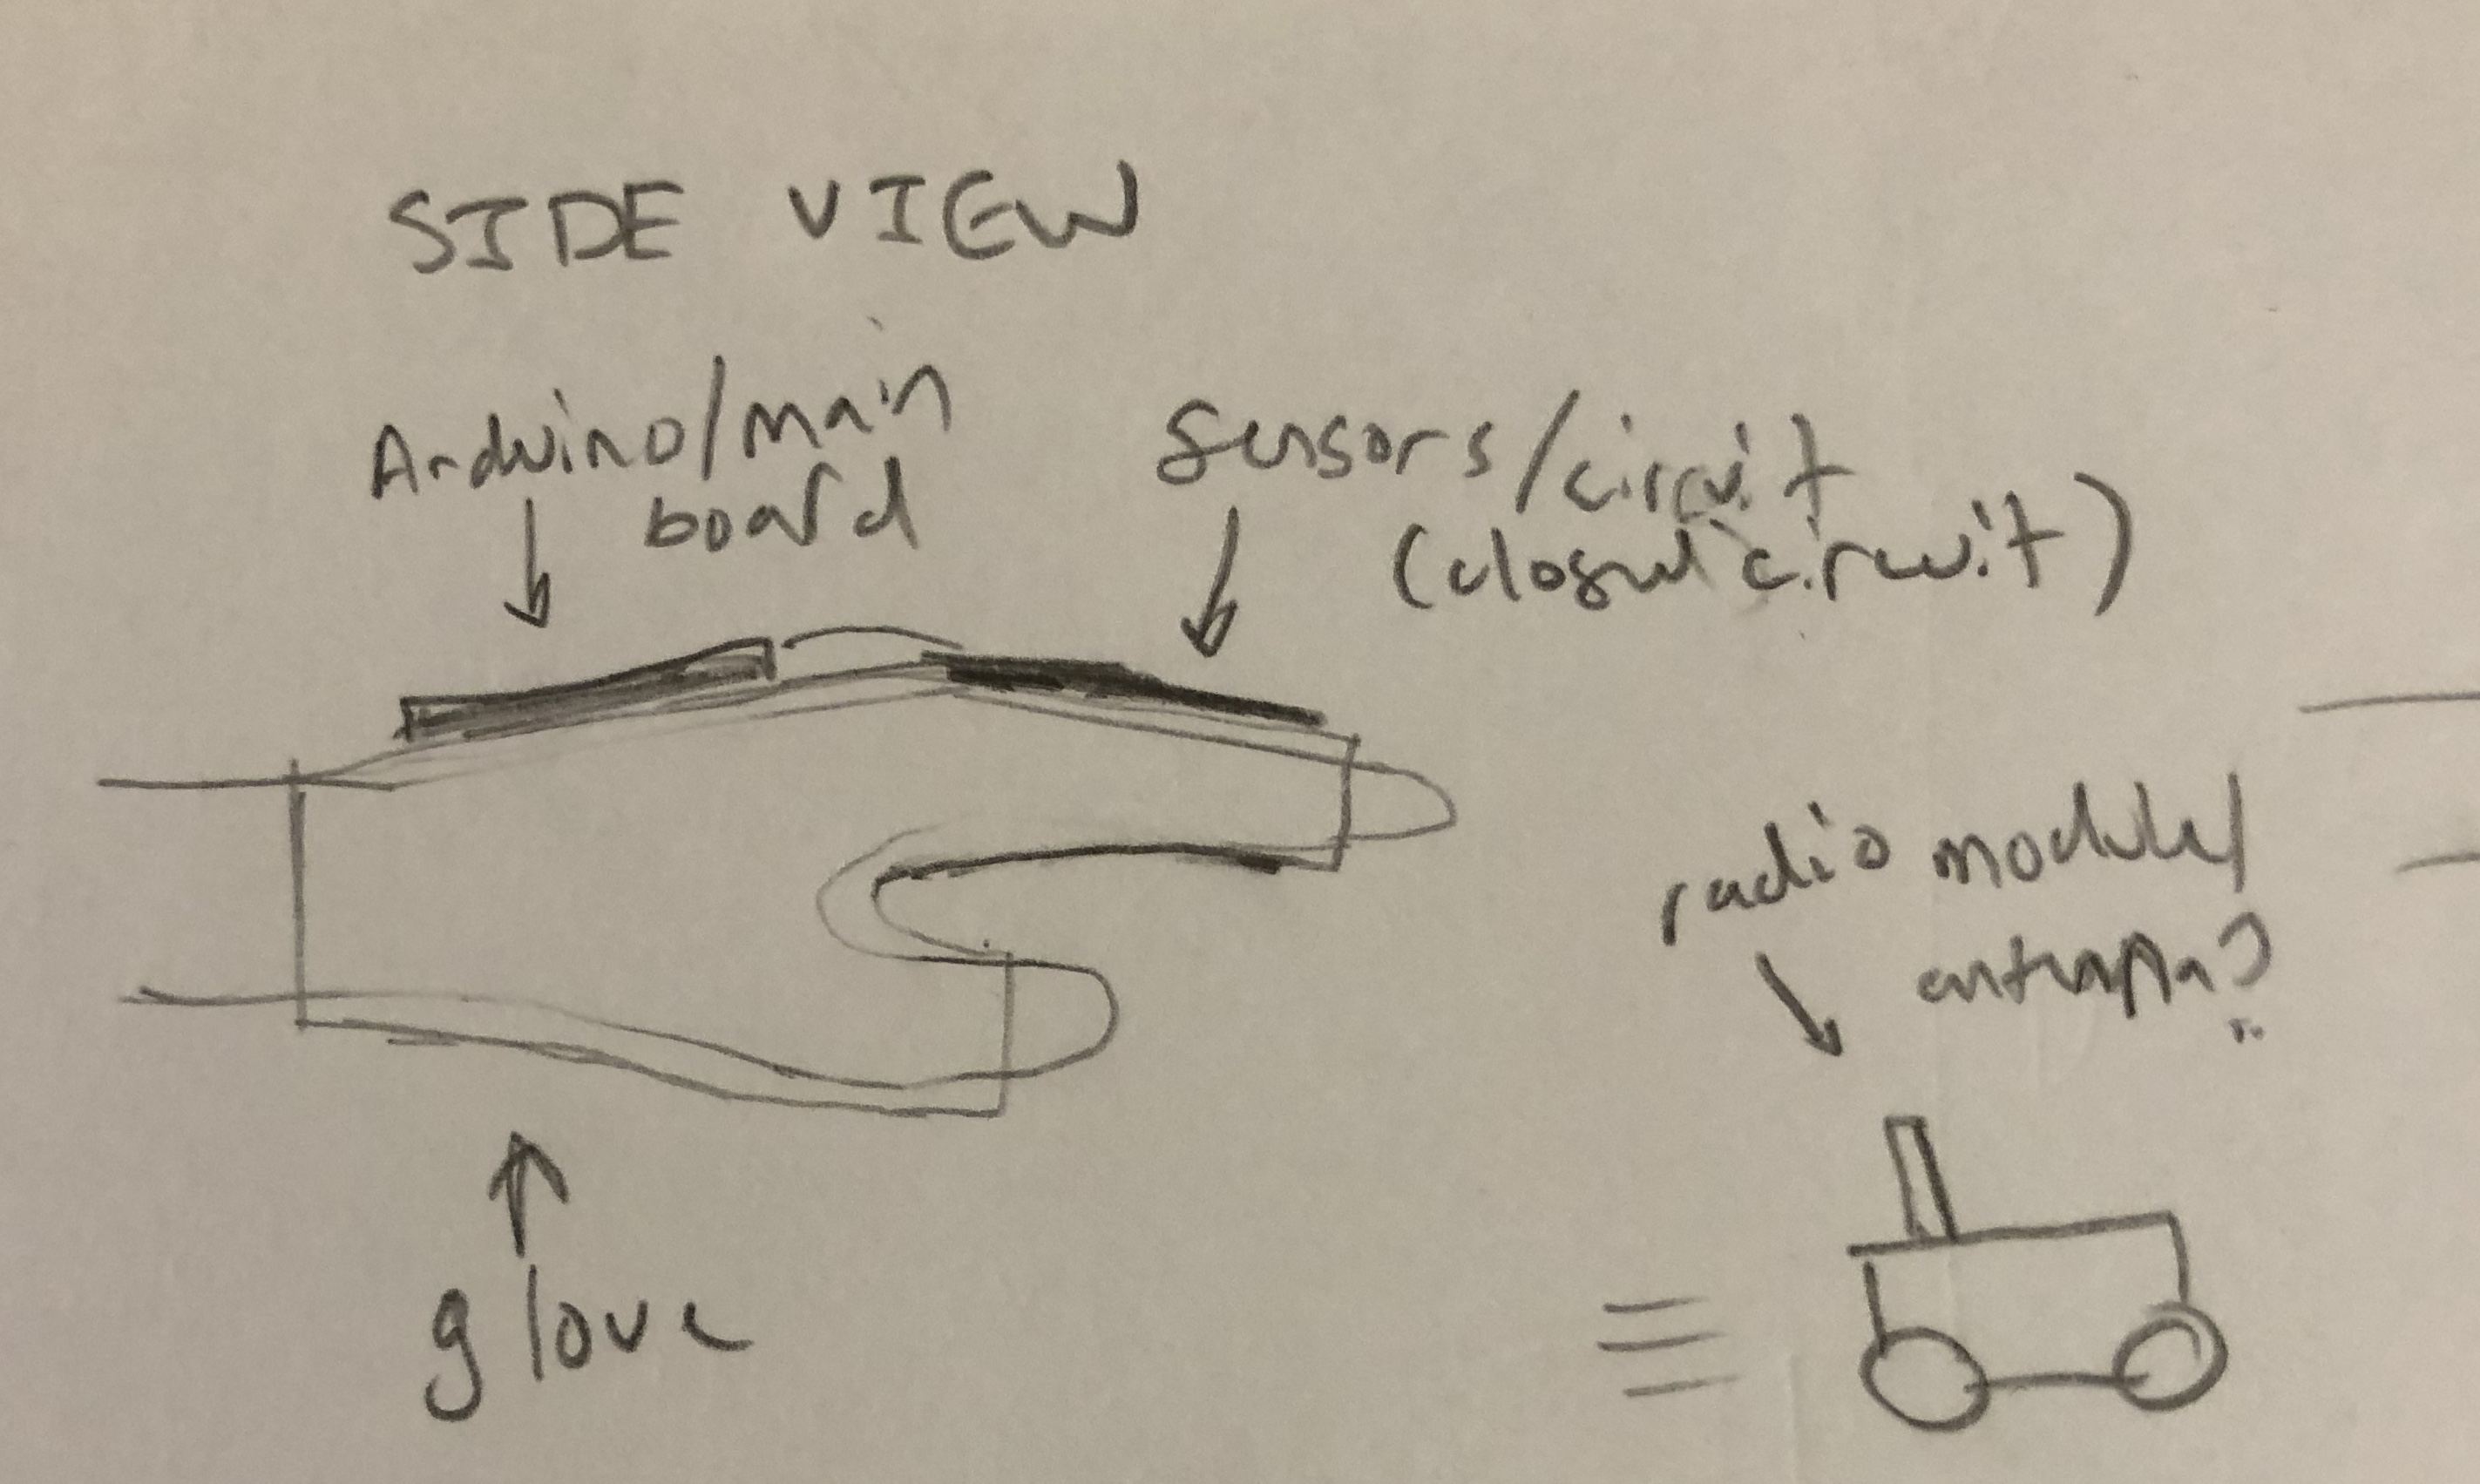 SIDE VIEW
Arduino/main
board
Sensors/circuit
(closed circuit)
radio module/
antenna?
glove